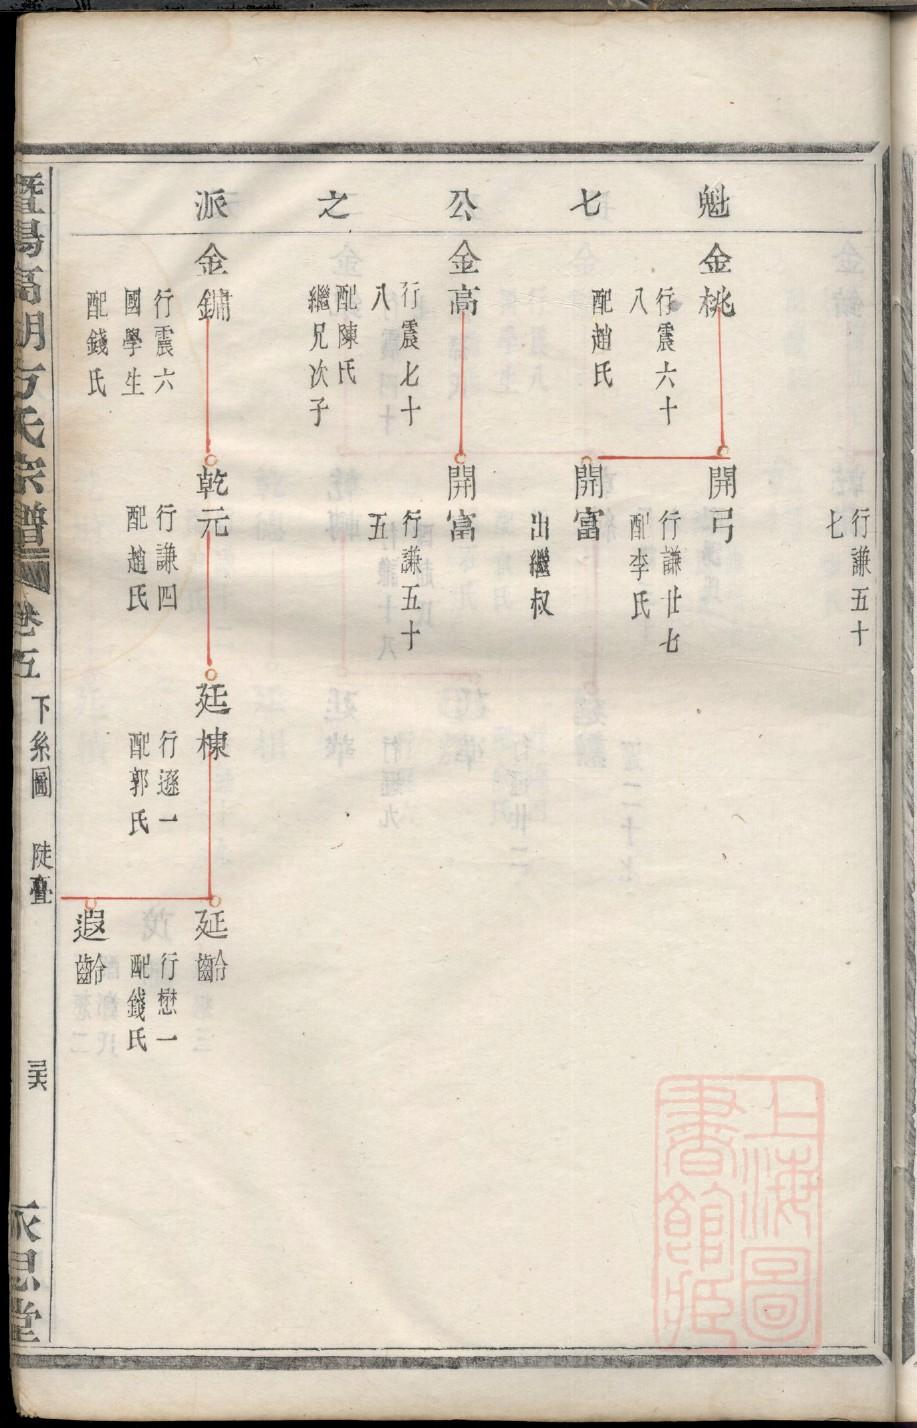 魁七公之派
行謙五十
七
金桃
行震六十
八
配趙氏
開弓
行謙廿七
配李氏
開富
出繼叔
金高
行震七十
八
配陳氏
繼兄次子
開富
行謙五十
五
金鏞
行震六
國學生
配錢氏
乾元
行謙四
配趙氏
廷棟
行遜一
配郭氏
延齡
行懋一
配錢氏
遐齡
暨陽高湖方氏宗譜
卷五
下糸圖
陡亹
永思堂
上海圖
書館藏